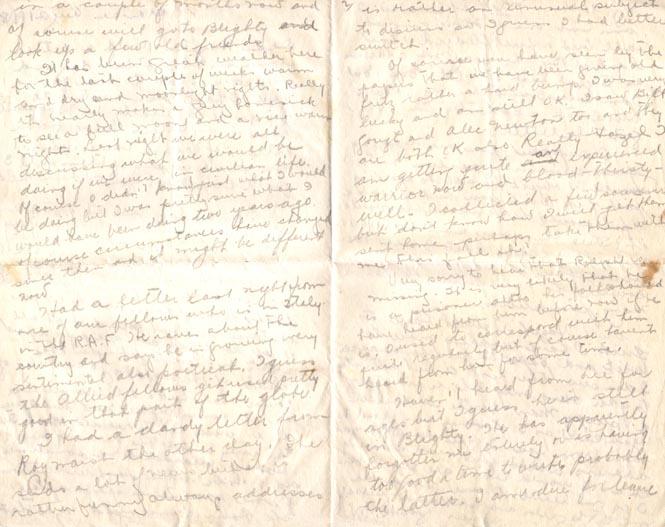 in a couple of months now and
of course will go to Blighty and
look up a few old friends.
It has been great weather here
for the last couple of weeks warm
and dry and moonlight nights. Really
it nearly makes a guy homesick
to see a full moon and a nice warm
night. Last night we were all
discussing what we would be
doing if we were in civilian life.
Of course I didn't know just what I would
be doing but I was pretty sure what I
would have been doing two years ago.
Of course circumstances have changed
since then and it might be different
now
Had a letter last night from
one of our fellows who is in Italy
in the R.A.F. He raves about the
country and says he is growing very
sentimental also poetical. I guess
the Allied fellows get used pretty
good in that part of the globe.
I had a dandy letter from
Roy the other day. He
a lot of
rather funny always addresses
is rather an unusual subject
to discuss so I guess I had better
switch.
Of course you have seen by the
papers that we have been giving old
Fritz rather a hard bump. I was very
lucky and am still OK. I saw Bill
and Alec Newton too and they
are both OK also. Really Hazel I
am getting quite an experienced
warrior now and blood-thirsty
well. I collected a few souvenirs
but don't know how I will get them
sent home perhaps take them with
me
Very sorry to hear that
missing. It is very likely that he
is a prisoner altho his folks should
have heard from him before now if he
is. I used to correspond with him
quite regularly but of course haven't
heard from him for some time.
Haven't heard from Lee for
ages but I guess he is still
in Blighty. He has apparently
forgotten me entirely or is having
too good a time to write probably
the latter. I am due for leave